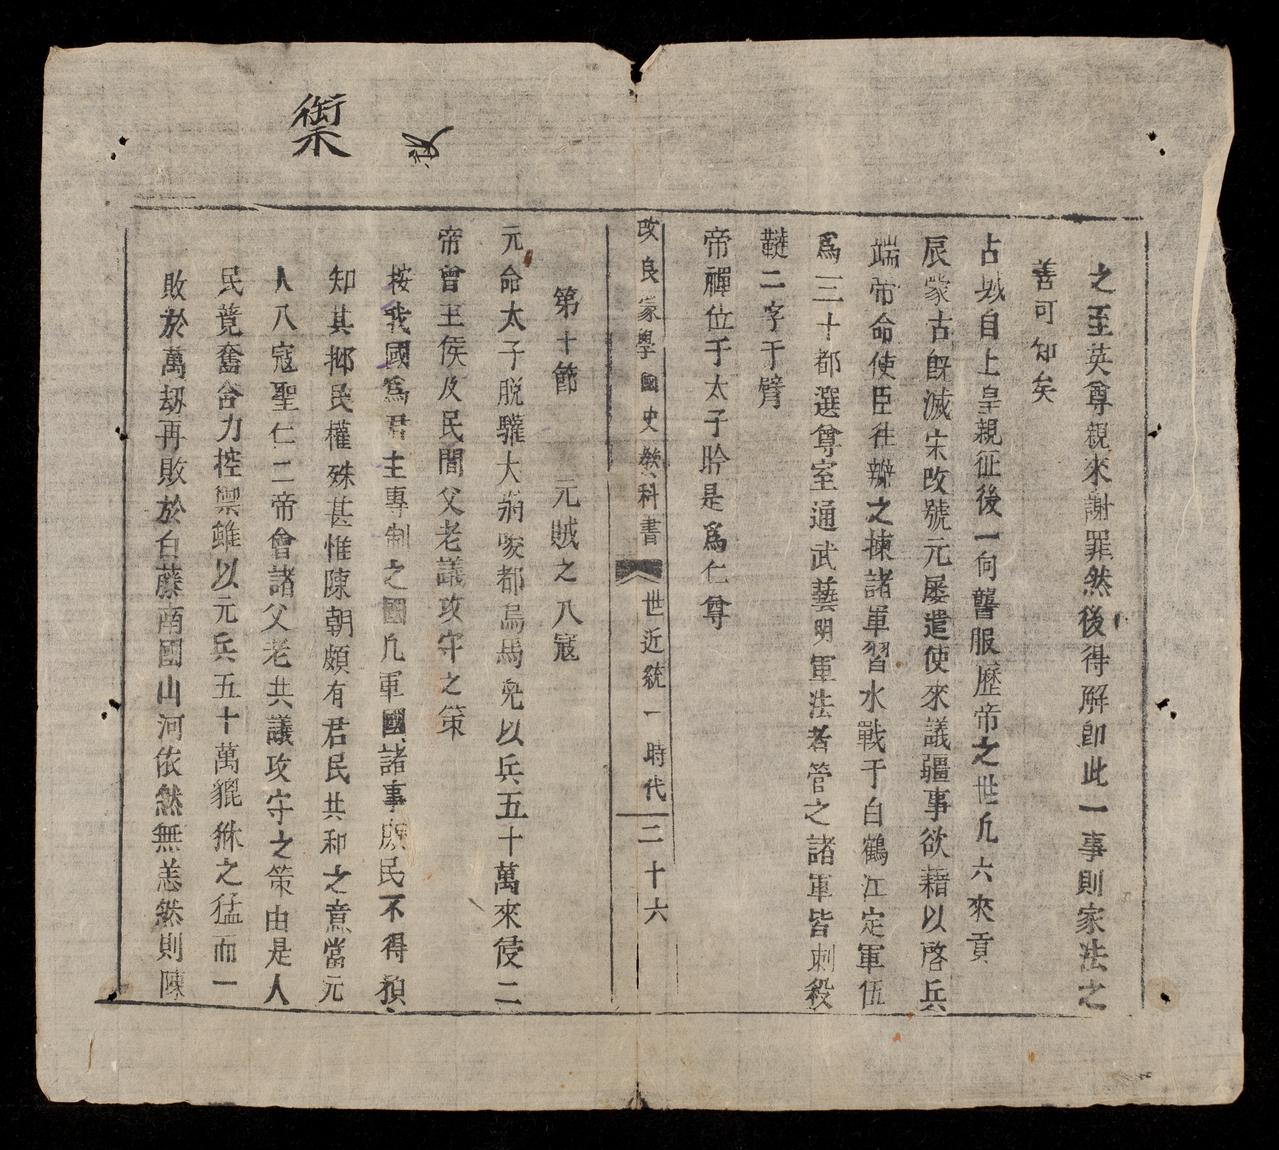 之至英尊親來謝罪然後得解卽此一事則家法之
善可知矣
占城自上皇親征後一向讋服歷帝之世凡六來貢
辰蒙古旣滅宋改號元屡遣使來議疆事欲藉以啓兵
端帝命使臣往辨之揀諸軍習水戰于白鶴江定軍伍
爲三十都選尊室通武藝明軍法者管之諸軍皆刺殺
韃二字于臂
帝禪位于太子昑是爲仁尊
改良蒙學國史教科書 世近統一時代 二十六
第十節 元賊之入寇
元命太子脱驩大將唆都烏馬兒以兵五十萬來侵二
帝曾王侯及民間父老議攻守之策
按我國爲君主專制之國凡軍國諸事庶民不得預
知其抑民權殊甚惟陳朝頗有君民共和之意當元
人入寇聖仁二帝會諸父老共議攻守之策由是人
民競奮合力控禦雖以元兵五十萬貔貅之猛而一
敗於萬刼再敗於白藤南國山河依然無恙然則陳